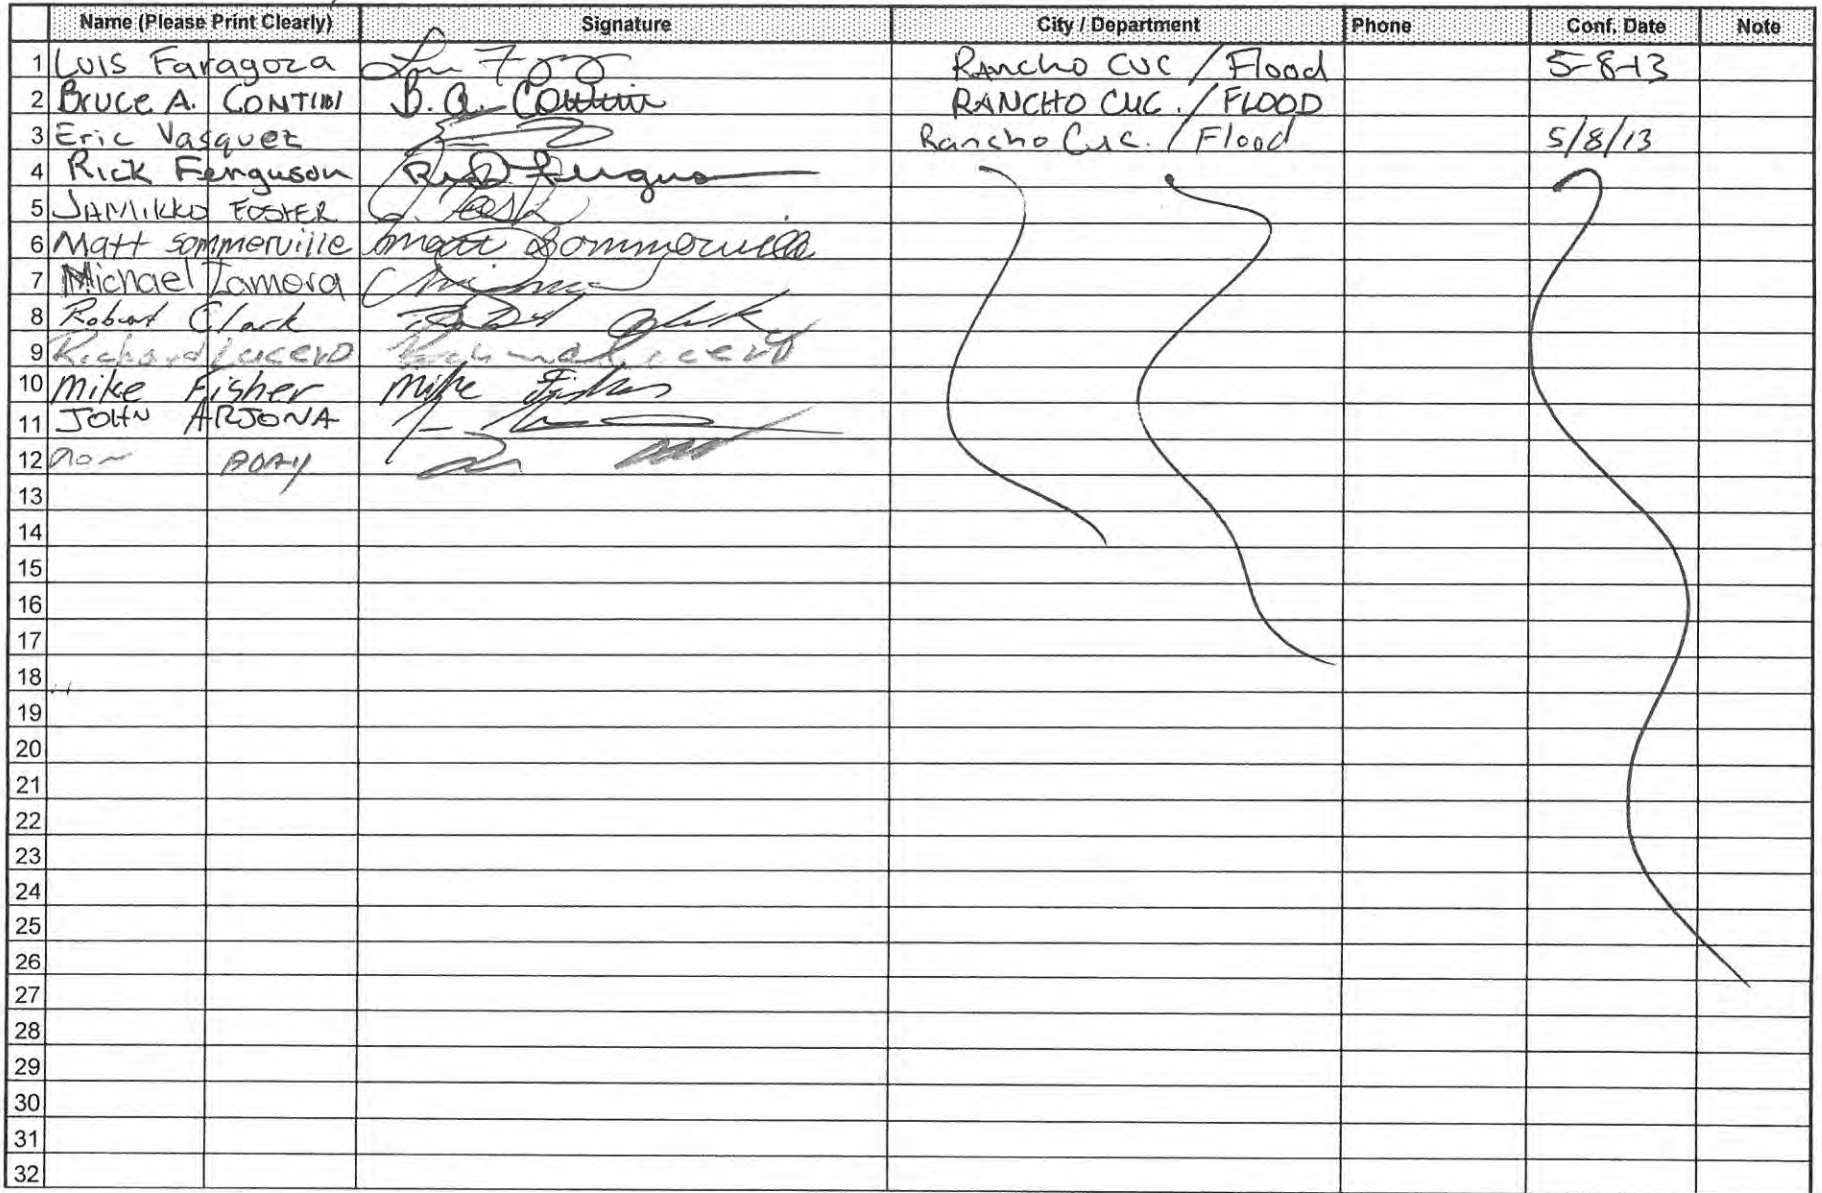 Name (Please Print Clearly) Signature City / Department Phone Conf. Date Note
1 Luis Faragoza Rancho CUC / Flood 5-8-13
2 Bruce A. CONTINI B.A. Contini RANCHO CUC. / FLOOD
3 Eric Vasquez Rancho Cuc. / Flood 5/8/13
4 Rick Ferguson Rick Ferguson
5 JAMIKKO FOSTER
6 Matt Sommerville Matt Sommerville
7 Michael Zamora
8 Robert Clark Robert Clark
9 Richard Lucero Richard Lucero
10 Mike Fisher Mike Fisher
11 JOHN ARJONA
12 RON
13
14
15
16
17
18
19
20
21
22
23
24
25
26
27
28
29
30
31
32